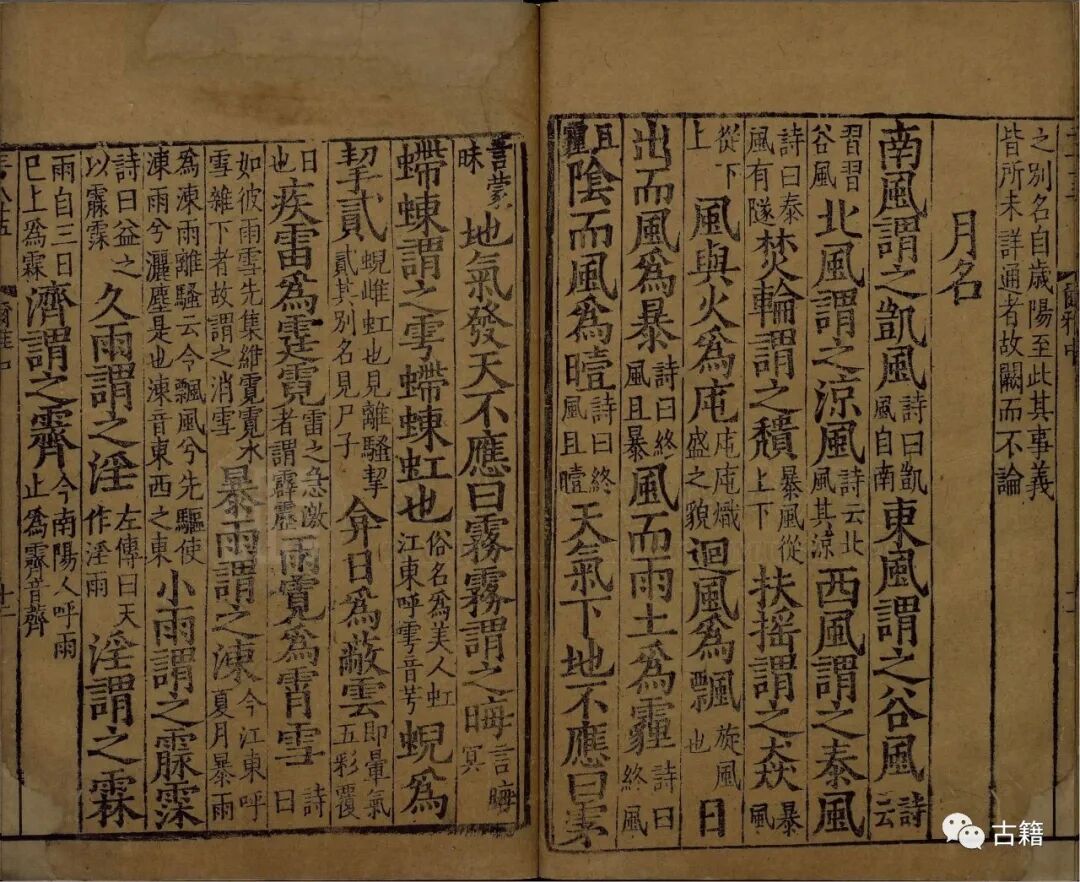 之別名自歲陽至此其事義
皆所未詳通者故闕而不論
月名
南風謂之凱風詩曰凱風自南東風謂之谷風詩云
習習谷風北風謂之涼風詩云北風其涼西風謂之泰風
詩曰泰風有隧焚輪謂之穨暴風從上下扶搖謂之猋暴風
從下上風與火為庉庉庉熾盛之貌迴風為飄旋風也日
出而風為暴詩曰終風且暴風而雨土為霾詩曰終風
且霾陰而風為曀詩曰終風且曀天氣下地不應曰雺
言蒙昧地氣發天不應曰霧霧謂之晦言晦冥
螮蝀謂之雩螮蝀虹也俗名為美人虹江東呼雩音芌蜺為
挈貳蜺雌虹也見離騷挈貳其別名見尸子弇日為蔽雲即暈氣五彩覆
日也疾雷為霆霓雷之急激者謂霹靂雨霓為霄雪詩曰
如彼雨雪先集維霓霓水雪雜下者故謂之消雪暴雨謂之涷今江東呼夏月暴雨
為涷雨離騷云令飄風兮先驅使涷雨兮灑塵是也涷音東西之東小雨謂之霡霂
詩曰益之以霡霂久雨謂之淫左傳曰天作淫雨淫謂之霖
雨自三日已上為霖濟謂之霽今南陽人呼雨止為霽音薺
古籍